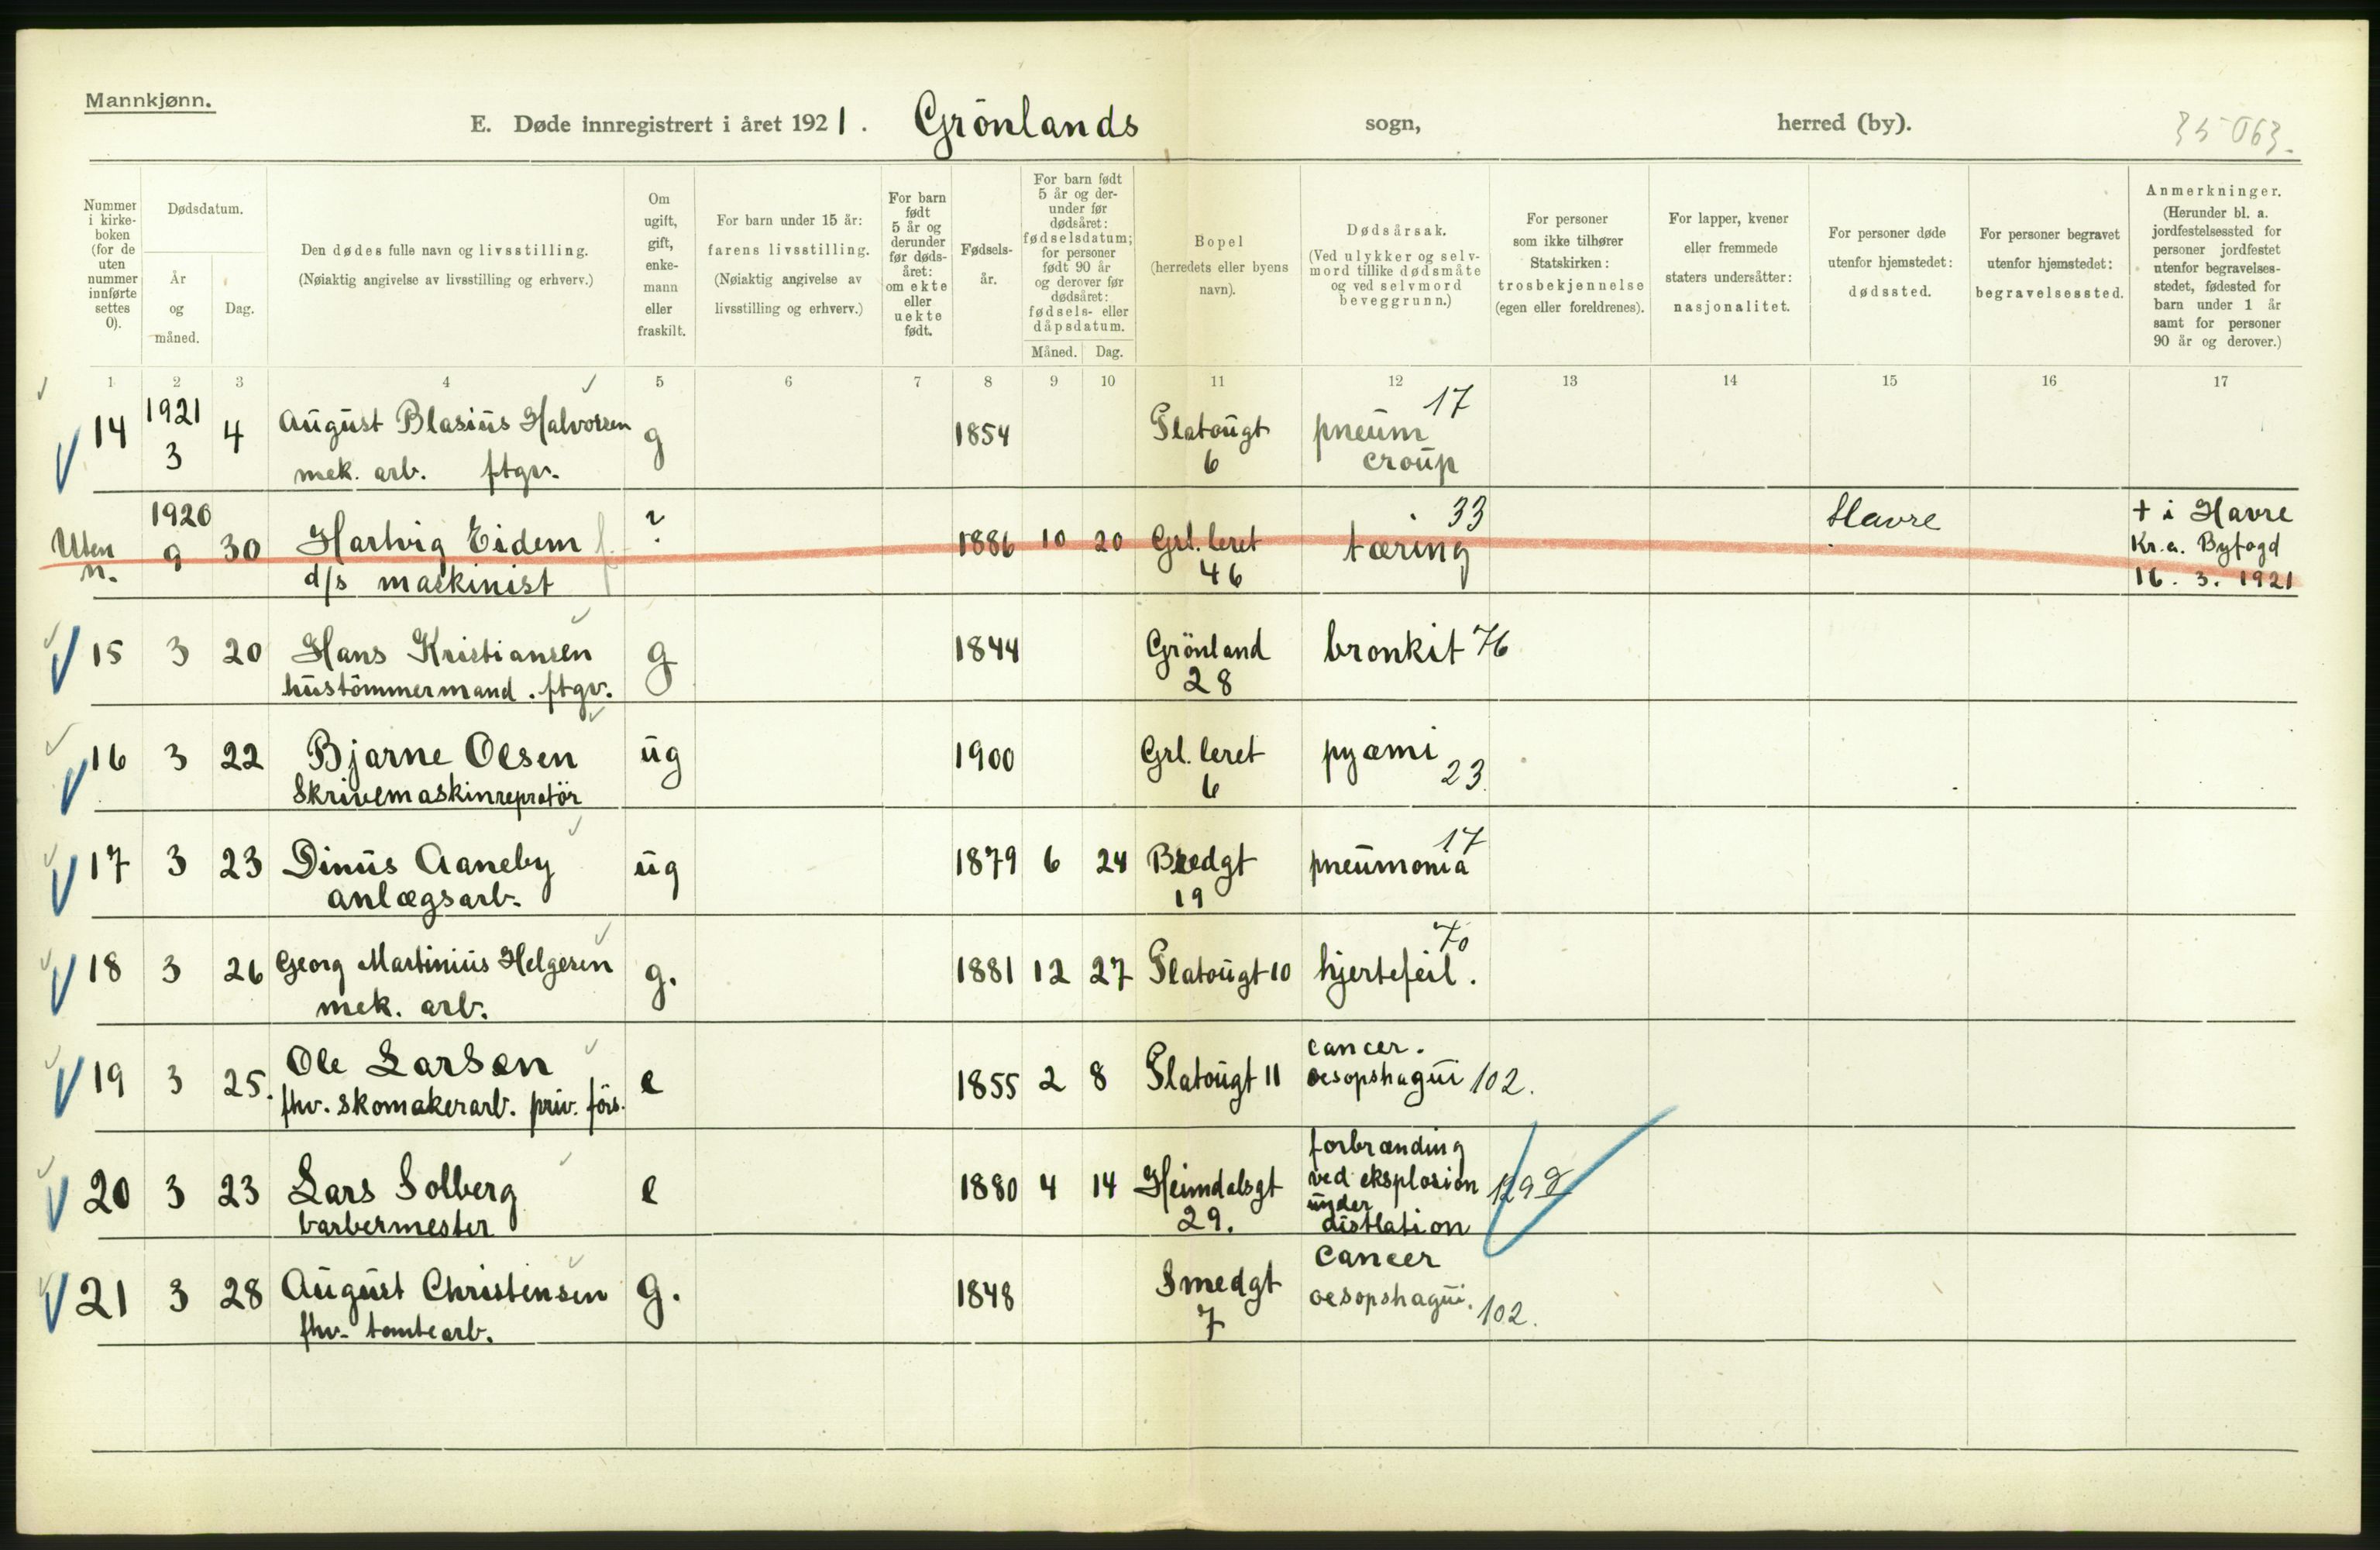 Mannkjønn.
E. Døde innregistrert i året 1921. Grönlands sogn, herred (by). 35063.
Nummer i kirke-boken (for de uten nummer innførte settes 0).
Dødsdatum.
År og måned.
Dag.
Den dødes fulle navn og livsstilling.
(Nøiaktig angivelse av livsstilling og erhverv.)
Om ugift, gift, enke-mann eller fraskilt.
For barn under 15 år:
farens livsstilling.
(Nøiaktig angivelse av livsstilling og erhverv.)
For barn født 5 år og derunder før døds-året: om ekte eller uekte født.
Fødsels-år.
For barn født 5 år og der-under før dødsåret: fødselsdatum; for personer født 90 år og derover før dødsåret: fødsels- eller dåpsdatum.
Måned. Dag.
Bopel
(herredets eller byens navn).
Dødsårsak.
(Ved ulykker og selv-mord tillike dødsmåte og ved selvmord beveggrunn.)
For personer som ikke tilhører Statskirken:
trosbekjennelse
(egen eller foreldrenes).
For lapper, kvener eller fremmede staters undersåtter:
nasjonalitet.
For personer døde utenfor hjemstedet:
dødssted.
For personer begravet utenfor hjemstedet:
begravelsessted.
Anmerkninger.
(Herunder bl. a. jordfestelsessted for personer jordfestet utenfor begravelses-stedet, fødested for barn under 1 år samt for personer 90 år og derover.)
1 2 3 4 5 6 7 8 9 10 11 12 13 14 15 16 17
14 1921 3 4 August Blasius Halvorsen g 1854 Platougt 6 pneum croup 17
mek. arb. ftgv.
Uten n. 1920 9 30 Hartvig Eidem ? 1886 10 20 Grl. leret 46 tæring 33 Havre + i Havre
d/s maskinist Kr.a. Byfogd
16. 3. 1921
15 3 20 Hans Kristiansen g 1844 Grönland 28 bronkit 76
hustömmermand. ftgv.
16 3 22 Bjarne Olsen ug 1900 Grl. leret 6 pyæmi 23
Skrivemaskinrepratör
17 3 23 Dinus Aaneby ug 1879 6 24 Bredgt 19 pneumonia 17
anlægsarb.
18 3 26 Georg Martinius Helgesen g. 1881 12 27 Platougt 10 hjertefeil. 70
mek. arb.
19 3 25. Ole Larsen e 1855 2 8 Platougt 11 cancer. oesopshagui 102.
fhv. skomakerarb. priv. förs.
20 3 23 Lars Solberg e 1880 4 14 Heimdalsgt 29. forbrænding ved eksplosion under distlation
barbermester
21 3 28 August Christensen g. 1848 Smedgt 7 Cancer oesopshagui. 102.
fhv. tomtearb.